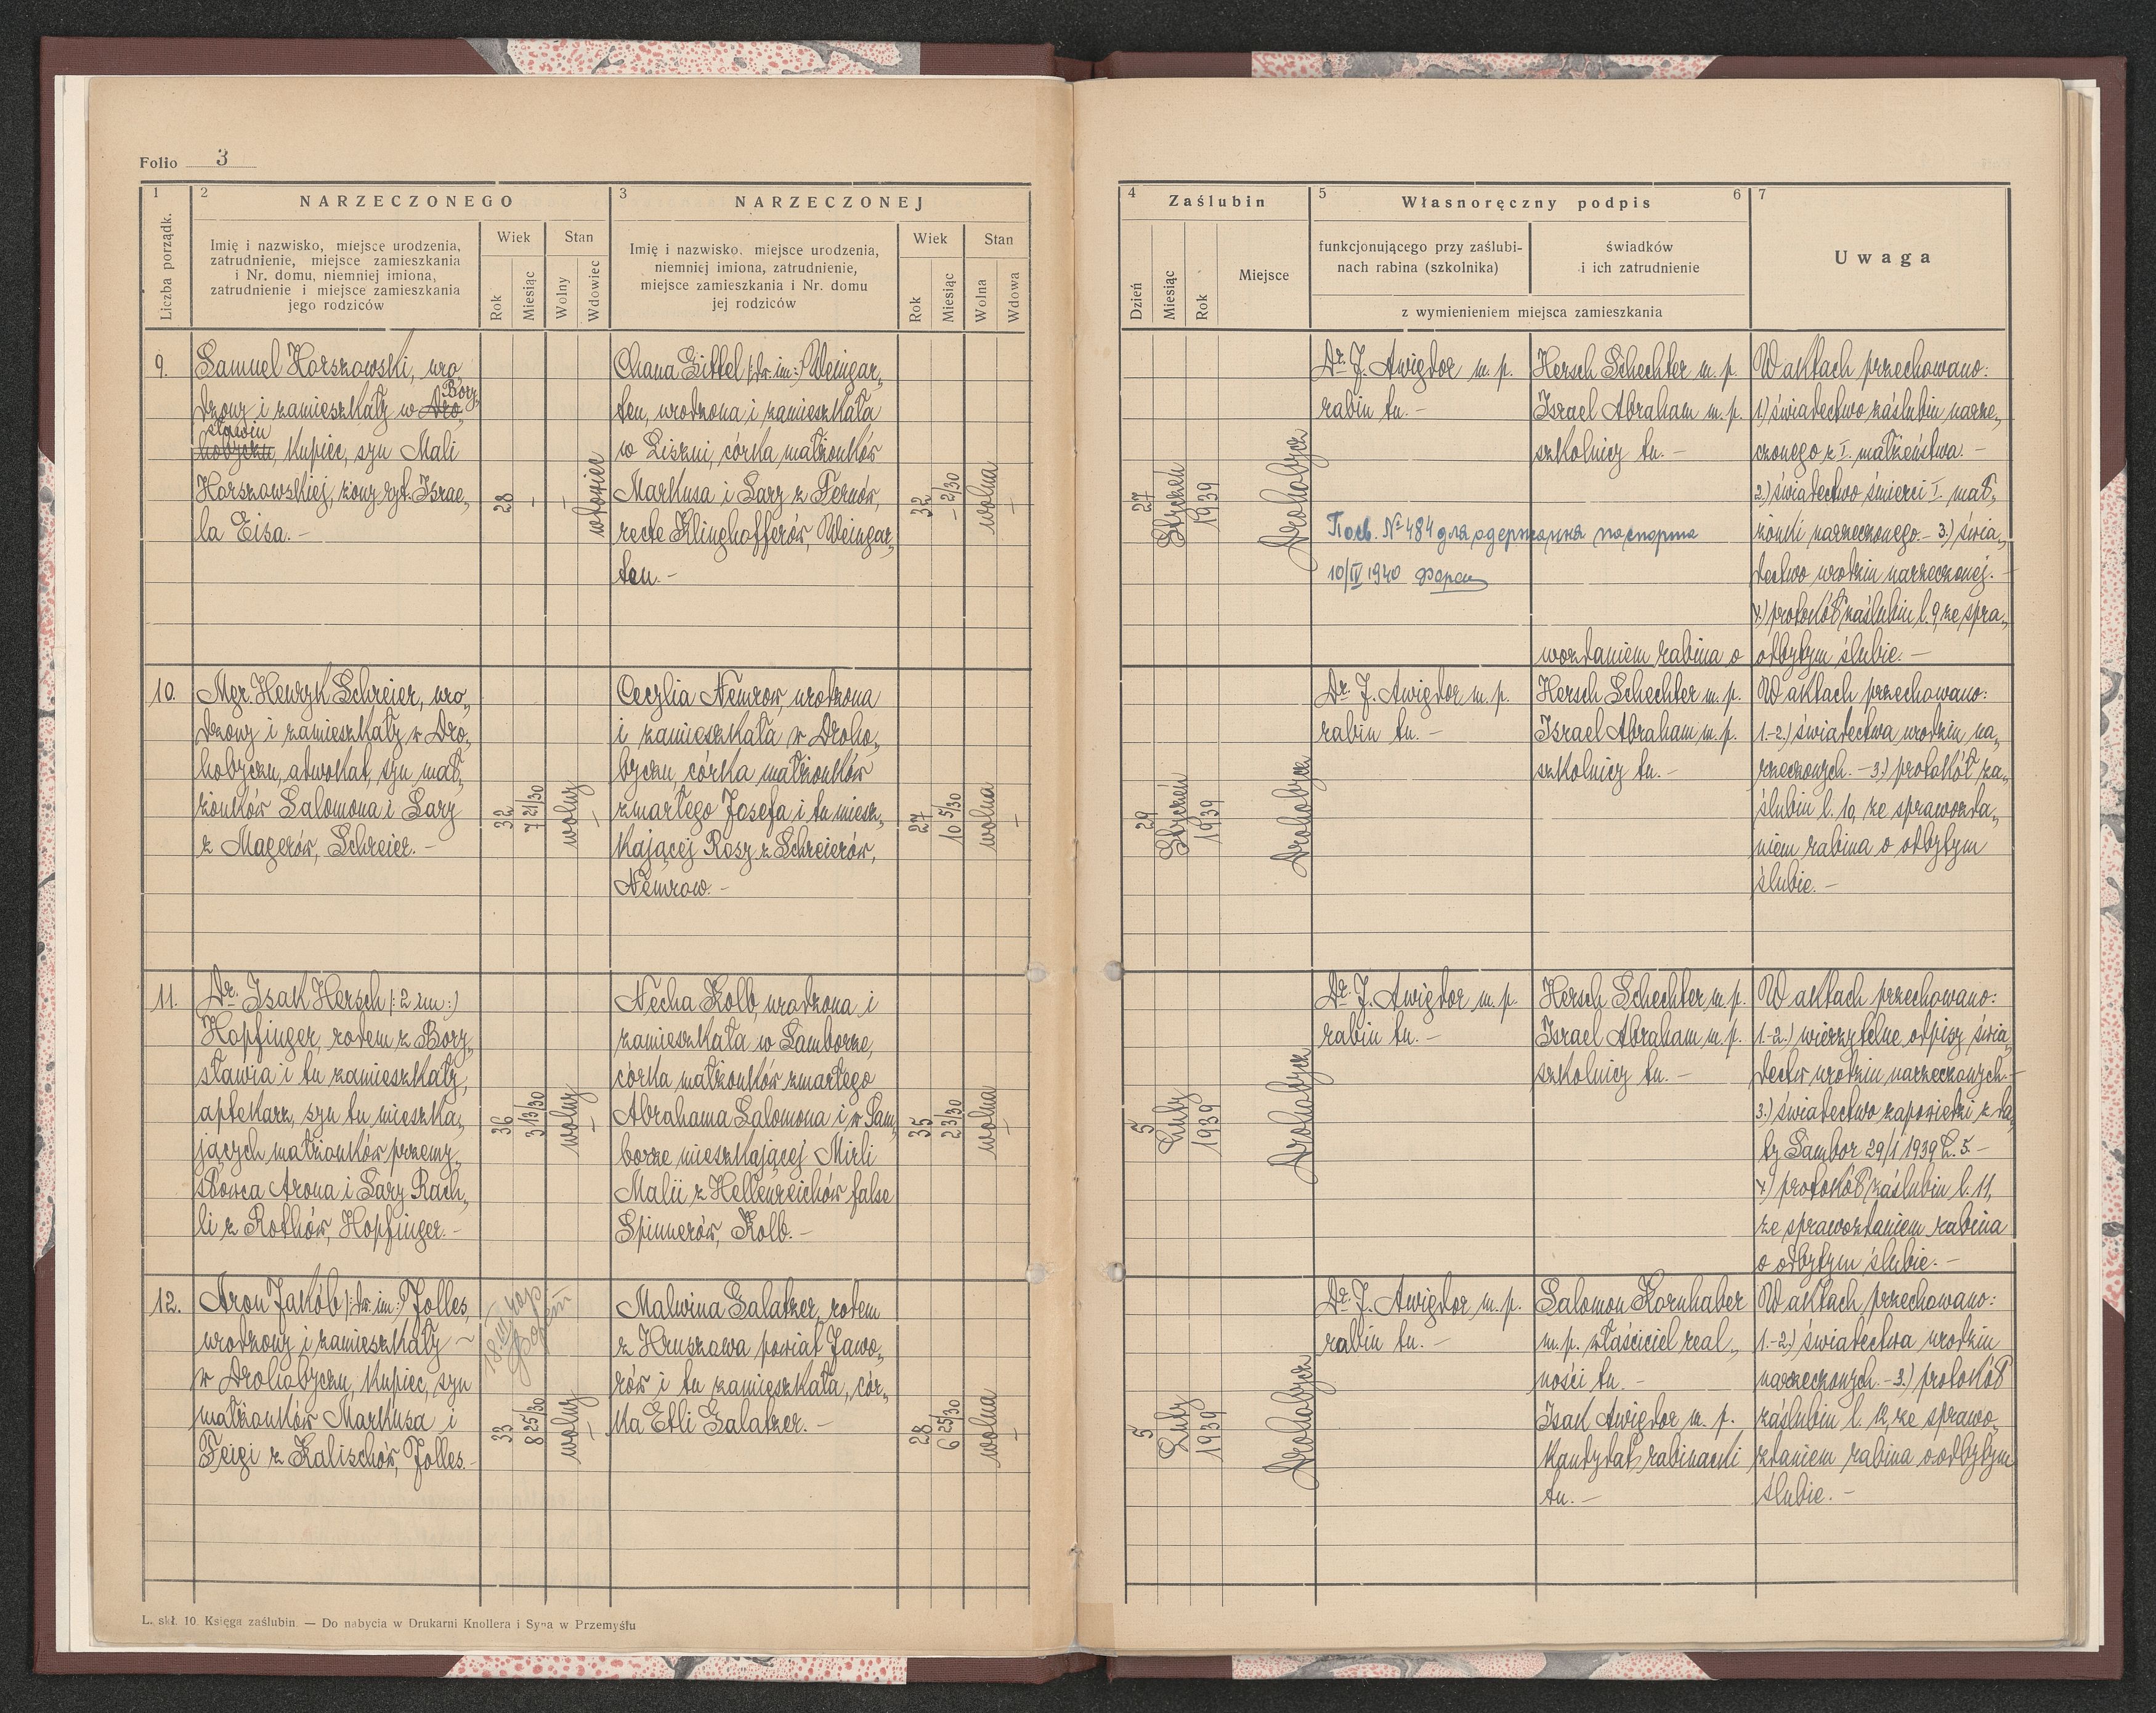 Folio 3
1
2
NARZECZONEGO
3
NARZECZONEJ
Liczba porządk.
Imię i nazwisko, miejsce urodzenia,
zatrudnienie, miejsce zamieszkania
i Nr. domu, niemniej imiona,
zatrudnienie i miejsce zamieszkania
jego rodziców
Wiek
Stan
Rok
Miesiąc
Wolny
Wdowiec
Imię i nazwisko, miejsce urodzenia,
niemniej imiona, zatrudnienie,
miejsce zamieszkania i Nr. domu
jej rodziców
Wiek
Stan
Rok
Miesiąc
Wolna
Wdowa
9.
Samuel Horszowski, uro„
dzony i zamieszkały w Dro„ Bory„
hobyczu, sławiu kupiec, syn Mali
Horszowskiej, żony ryt. Izrae„
la Eisa. —
28
—
—
wdowiec
Chana Gittel /:dw. im:/ Weingar„
ten, urodzona i zamieszkała
w Liszni, córka małżonków
Markusa i Sary z Fernów,
recte Klinghofferów, Weingar„
ten. —
32
— 2/30
wolna
—
10.
Mgr. Henryk Schreier, uro„
dzony i zamieszkały w Dro„
hobyczu, adwokat, syn mał„
żonków Salomona i Sary
z Magerów, Schreier. —
32
7 21/30
wolny
—
Cecylia Nemrow, urodzona
i zamieszkała w Droho„
byczu, córka małżonków
zmarłego Josefa i tu miesz„
kającej Rosy z Schreierów,
Nemrow. —
27
10 5/30
wolna
—
11.
Dr. Isak Hersch /: 2 im:/
Hopfinger, rodem z Bory„
sławia i tu zamieszkały,
aptekarz, syn tu mieszka„
jących małżonków przemy„
słowca Arona i Sary Rach„
li z Rothów, Hopfinger. —
36
3 13/30
wolny
—
Necha Kolb, urodzona i
zamieszkała w Samborze,
córka małżonków zmarłego
Abrahama Salomona i w Sam„
borze mieszkającej Mirli
Malii z Hellenreichów false
Spinnerów, Kolb. —
35
2 3/30
wolna
—
12.
Aron Jakób /:dw. im:/ Jolles,
urodzony i zamieszkały ~
w Drohobyczu, kupiec, syn
małżonków Markusa i
Feigi z Kalischów, Jolles. —
33
8 25/30
wolny
—
Malwina Galatzer, rodem
z Hruszowa powiat Jawo„
rów i tu zamieszkała, cór„
ka Etli Galatzer. —
28
6 25/30
wolna
—
L. skł. 10. Księga zaślubin. — Do nabycia w Drukarni Knollera i Syna w Przemyślu
4
Zaślubin
5
Własnoręczny podpis
6
7
Dzień
Miesiąc
Rok
Miejsce
funkcjonującego przy zaślubi-
nach rabina (szkolnika)
świadków
i ich zatrudnienie
z wymienieniem miejsca zamieszkania
Uwaga
27
Styczeń
1939
Drohobycz
Dr. J. Awigdor m. p.
rabin tu. —
Hersch Schechter m. p.
Israel Abraham m. p.
szkolnicy tu. —
Посв. № 484 для одержання паспорта
10/IV 1940
W aktach przechowano:
1.) świadectwo zaślubin narze„
czonego z I. małżeństwa. —
2.) świadectwo śmierci I. mał„
żonki narzeczonego. — 3.) świa„
dectwo urodzin narzeczonej. —
4.) protokół zaślubin l. 9, ze spra„
wozdaniem rabina o odbytym ślubie. —
29
Styczeń
1939
Drohobycz
Dr. J. Awigdor m. p.
rabin tu. —
Hersch Schechter m. p.
Israel Abraham m. p.
szkolnicy tu. —
W aktach przechowano:
1.-2.) świadectwa urodzin na„
rzeczonych. — 3.) protokół za„
ślubin l. 10, ze sprawozda„
niem rabina o odbytym
ślubie. —
5
Luty
1939
Drohobycz
Dr. J. Awigdor m. p.
rabin tu. —
Hersch Schechter m. p.
Israel Abraham m. p.
szkolnicy tu. —
W aktach przechowano:
1.-2.) wierzytelne odpisy świa„
dectw urodzin narzeczonych. —
3.) świadectwo zapowiedzi z da„
ty Sambor 29/1 1939 L. 5. —
4.) protokół zaślubin l. 11,
ze sprawozdaniem rabina
o odbytym ślubie. —
5
Luty
1939
Drohobycz
Dr. J. Awigdor m. p.
rabin tu. —
Salomon Kornhaber
m. p. właściciel real„
ności tu. —
Isak Awigdor m. p.
kandydat rabinacki
tu. —
W aktach przechowano:
1.-2.) świadectwa urodzin
narzeczonych. — 3.) protokół
zaślubin l. 12, ze sprawo„
zdaniem rabina o odbytym
ślubie. —